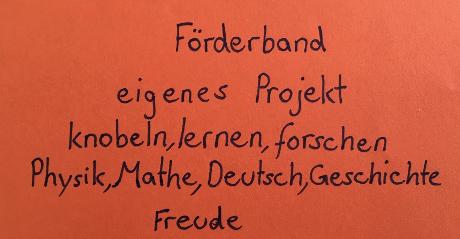 Förderband
eigenes Projekt
knobeln, lernen, forschen
Physik, Mathe, Deutsch, Geschichte
Freude